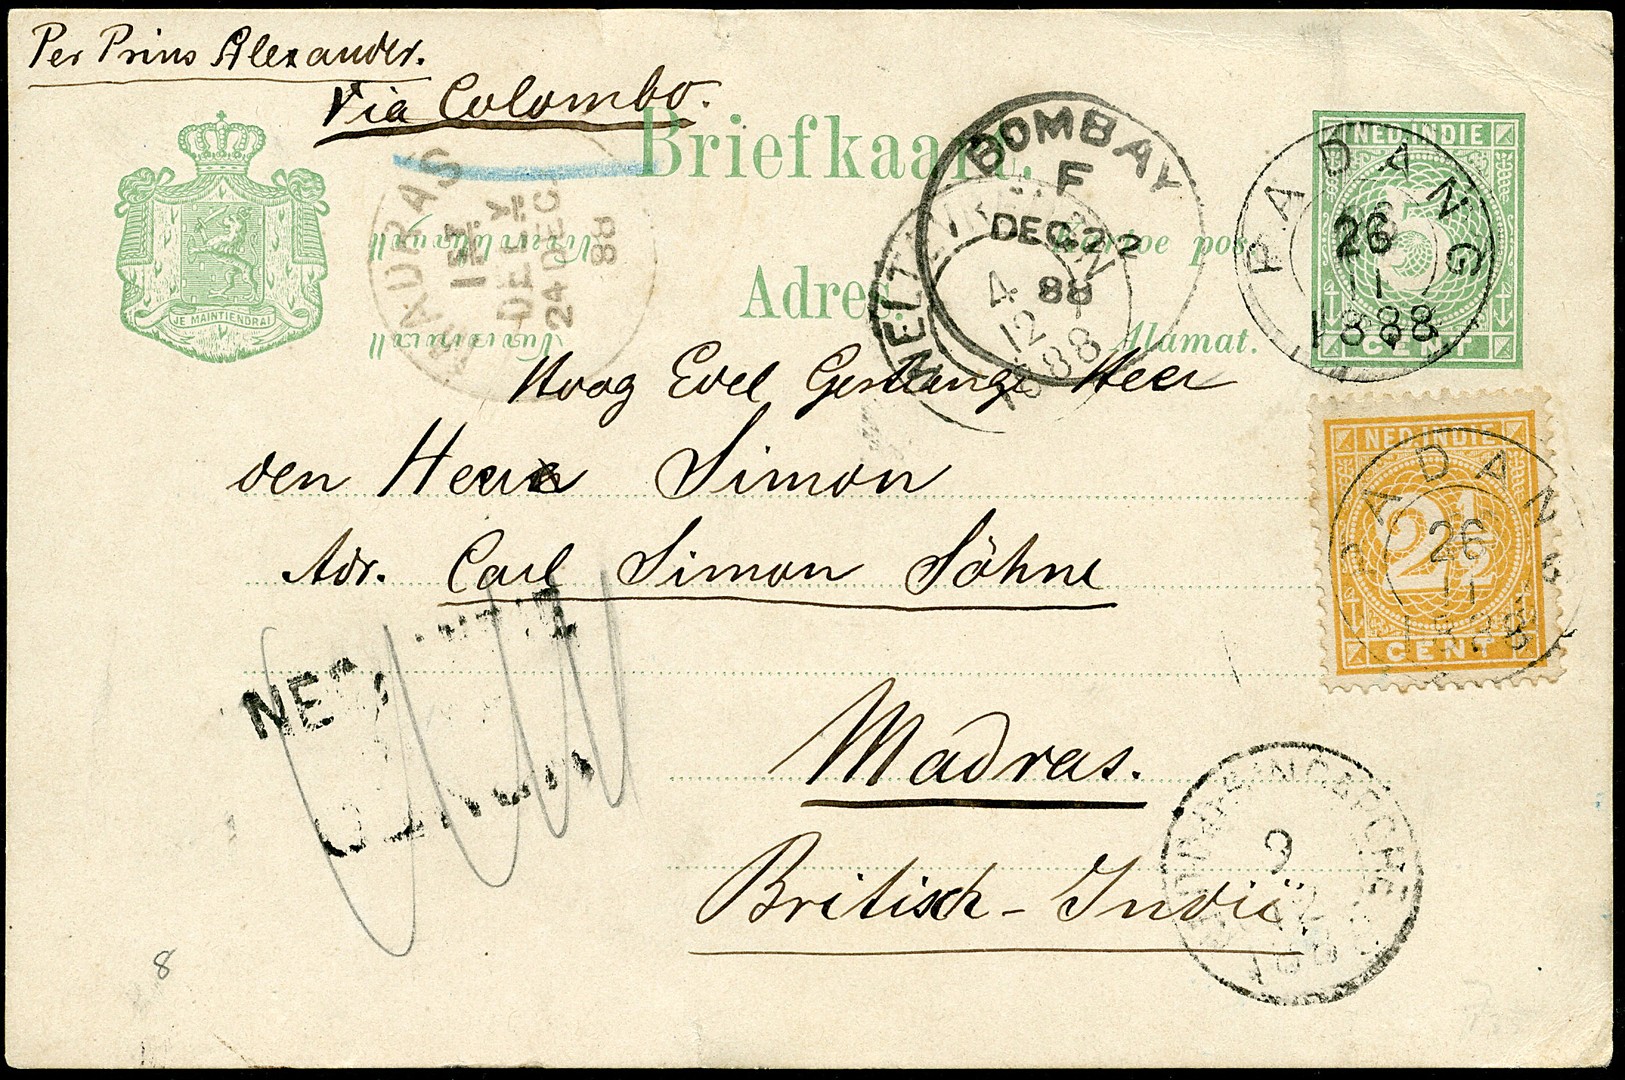 Per Prins Alexander.
Via Colombo.
Briefkaart.
Kartoe pos
Adres.
Alamat.
JE MAINTIENDRAI
MADRAS
1ST
DELY
24 DEC
88
BOMBAY
F
DEC 22
88
WELTEVREDEN
4
12
1888
NED. INDIE
5
CENT
PADANG
26
11
1888
Hoog Edel Gestrenge Heer
den Heer Simon
Adr. Carl Simon Söhne
Madras.
British-Indië
NED. INDIE
2½
CENT
PADANG
26
11
1888
NED.
9
8